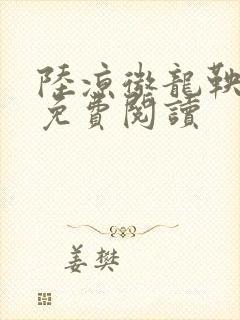 陸凉徵龍鞅
免費閱讀
姜樊